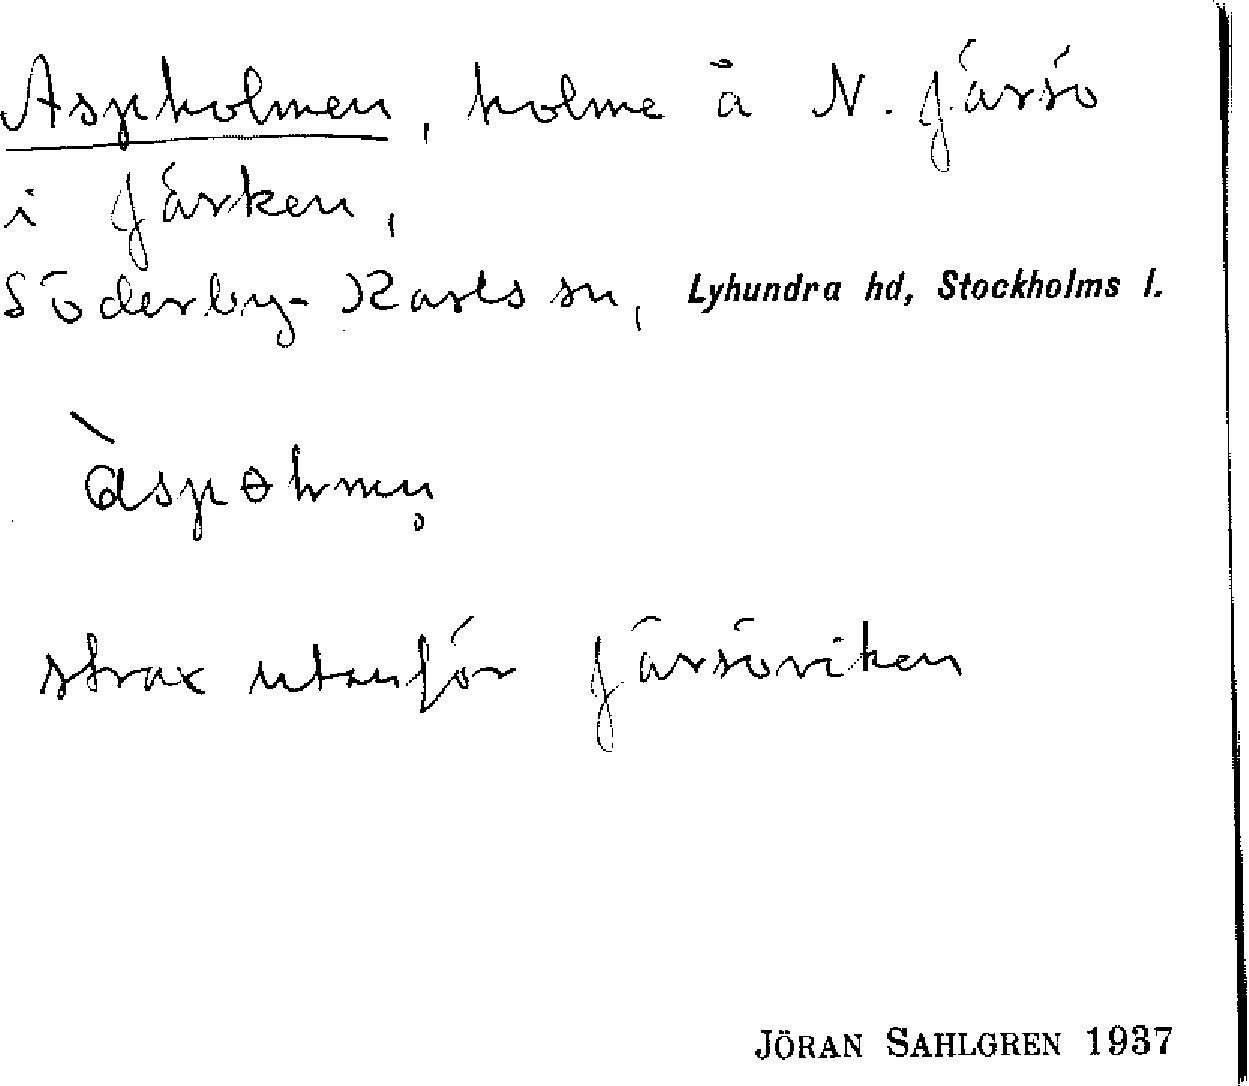 Aspholmen, holme å N. Järsö
i Järken,
Söderby-Karls sn, Lyhundra hd, Stockholms l.
strax utanför Järsöviken
JÖRAN SAHLGREN 1937